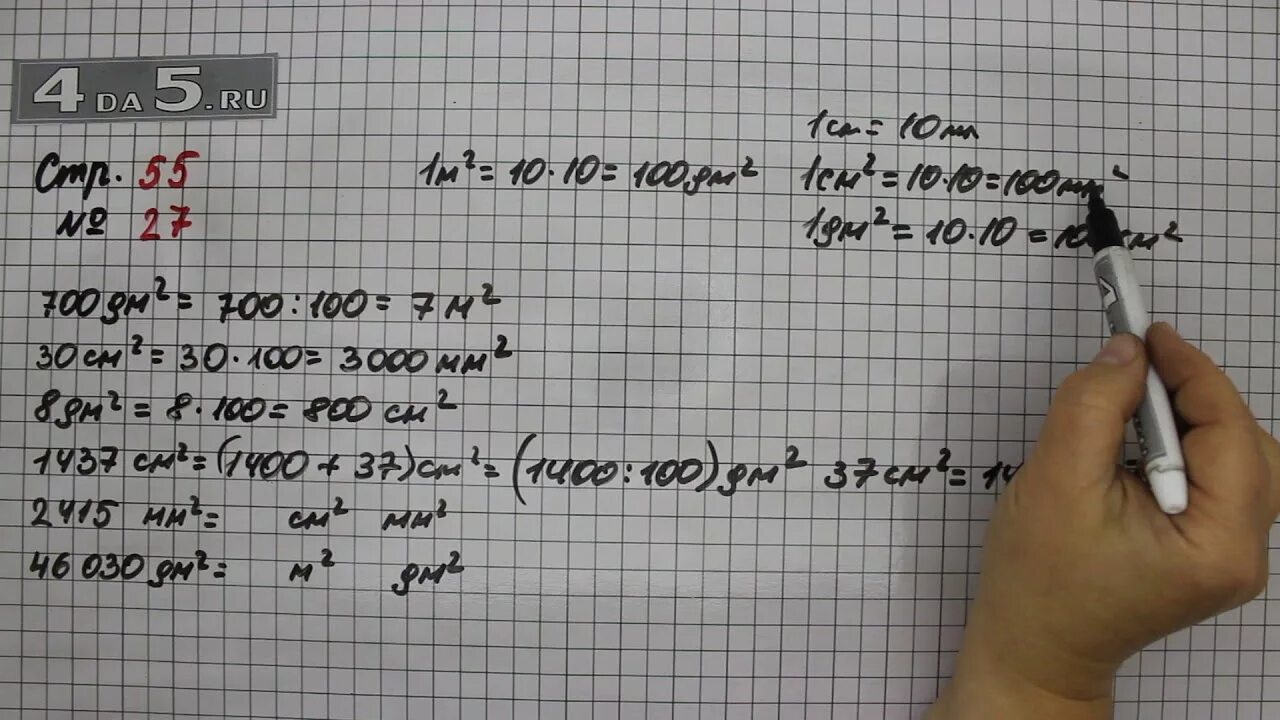 4 DA 5.RU
Стр. 55
№ 27
1м² = 10·10 = 100дм²
1см = 10мм
1см² = 10·10 = 100мм²
1дм² = 10·10 = см²
700дм² = 700:100 = 7 м²
30см² = 30·100 = 3000 мм²
8дм² = 8·100 = 800 см²
1437 см² = (1400 + 37)см² = (1400:100)дм² 37см² =
2415 мм² = см² мм²
46 030 дм² = м² дм²